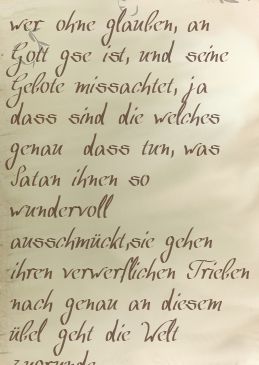 wer ohne glauben, an
Gott gse ist, und seine
Gebote missachtet, ja
dass sind die welches
genau dass tun, was
Satan ihnen so
wundervoll
ausschmückt,sie gehen
ihren verwerflichen Trieben
nach genau an diesem
übel geht die Welt
zugrunde